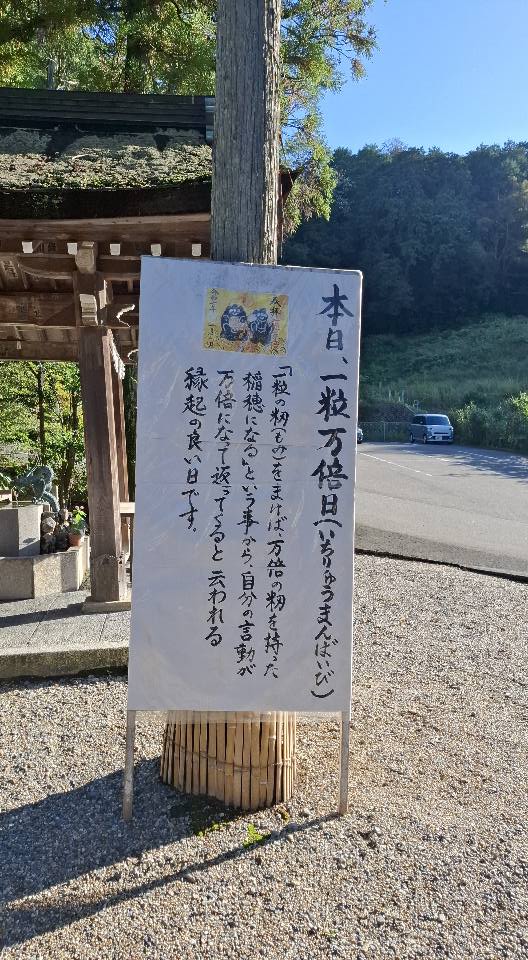 本日、一粒万倍日(いちりゅうまんばいび)
「一粒の籾(もみ)をまけば、万倍の籾を持った
稲穂になる」という事から、自分の言動が
万倍になって返ってくると云われる
縁起の良い日です。
奉拝